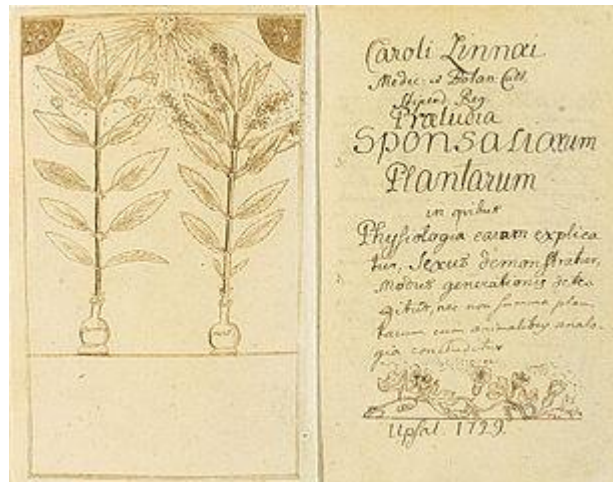 Caroli Linnæi
Medic. et Botan. Cult.
Stipend. Reg.
Præludia
SPONSALIORUM
Plantarum
in quibus
Physiologia earum explica
tur, Sexus demonstratur,
Modus generationis dete
gitur, nec non summa plan
tarum cum animalibus analo
gia concluditur
Upsal. 1729.